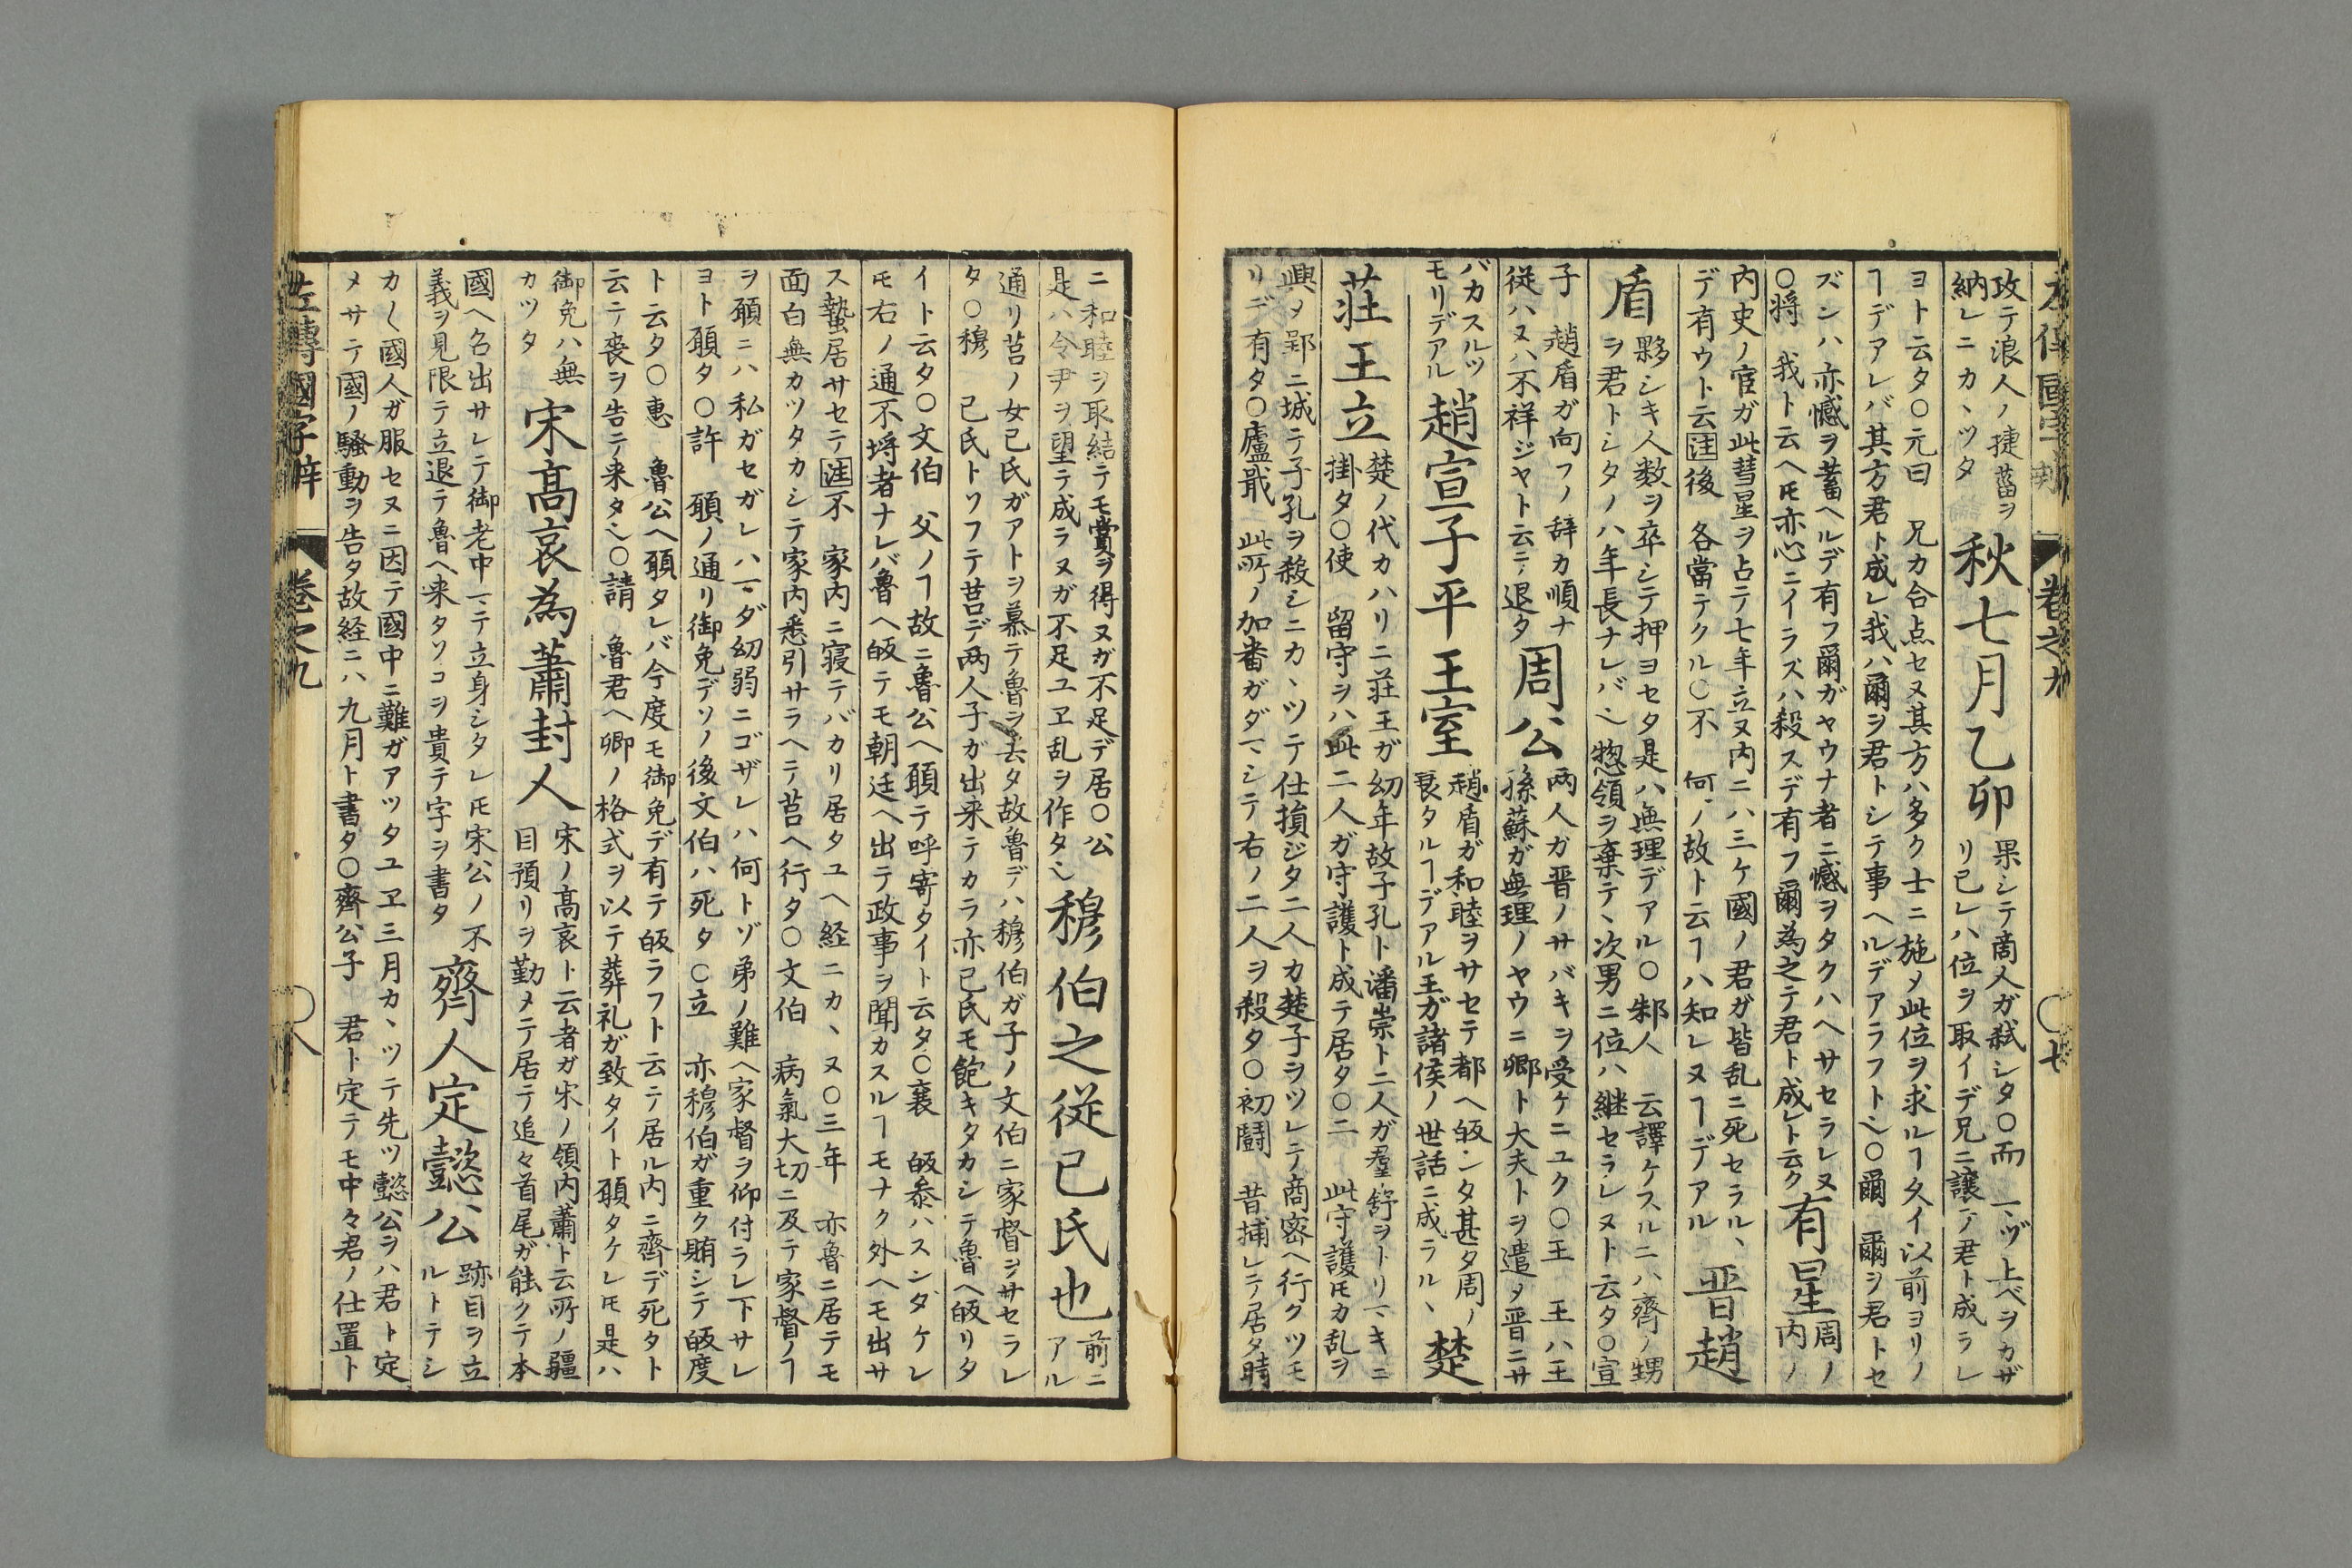 左傳國字辯 巻之九 〇七
攻テ浪人ノ捷菑ヲ
納レニカヽツタ
秋七月乙卯
果シテ商人ガ弑シタ〇而 マヅ上ベヲカザ
リ已レハ位ヲ取イデ兄ニ譲テ君ト成ラレ
ヨト云タ〇元曰 兄カ合点セヌ其方ハ多ク士ニ施メ此位ヲ求ルヿ久イ以前ヨリノ
ヿデアレバ其方君ト成レ我ハ爾ヲ君トシテ事ヘルデアラフト也〇爾 爾ヲ君トセ
ズンハ亦憾ヲ蓄ヘルデ有フ爾ガヤウナ者ニ憾ヲタクハヘサセラレヌ
〇将 我ト云ヘ𪜈亦心ニイラズハ殺スデ有フ爾為之テ君ト成レト云ク
有星
周ノ
内ノ
内史ノ官ガ此彗星ヲ占テ七年立ヌ内ニハ三ケ國ノ君ガ皆乱ニ死セラルヽ
デ有ウト云注後 各當テクル〇不 何ノ故ト云ヿハ知レヌヿデアル
晋趙
盾
夥シキ人数ヲ卒シテ押ヨセタ是ハ無理デアル〇邾人 云譯ケスルニハ齊ノ甥
ヲ君トシタノハ年長ナレバ也惣領ヲ棄テヽ次男ニ位ハ継セラレヌト云タ〇宣
子 趙盾ガ向フノ辞カ順ナ
従ハヌハ不祥ジヤト云テ退タ
周公
两人ガ晋ノサバキヲ受ケニユク〇王 王ハ王
孫蘇ガ無理ノヤウニ卿ト大夫トヲ遣メ晋ニサ
バカスルツ
モリデアル
趙宣子平王室
趙盾ガ和睦ヲサセテ都ヘ皈ンタ甚タ周ノ
衰タルヿデアル王ガ諸侯ノ世話ニ成ラルヽ
楚
荘王立
楚ノ代カハリニ荘王ガ幼年故子孔ト潘崇ト二人ガ羣舒ヲトリマキニ
掛タ〇使 留守ヲハ此二人ガ守護ト成テ居タ〇二 此守護𪜈カ乱ヲ
興メ郢ニ城テ子孔ヲ殺シニカヽツテ仕損ジタ二人カ楚子ヲツレテ商密ヘ行クツモ
リデ有タ〇廬戢 此所ノ加番ガダマシテ右ノ二人ヲ殺タ〇初鬪 昔捕レテ居タ時
ニ和睦ヲ取結テモ賞ヲ得ヌガ不足デ居〇公
是ハ令尹ヲ望テ成ラヌガ不足ユヱ乱ヲ作タ也
穆伯之従已氏也
前ニ
アル
通リ莒ノ女已氏ガアトヲ慕テ魯ヲ去タ故魯デハ穆伯ガ子ノ文伯ニ家督ヲサセラレ
タ〇穆 己氏トソフテ莒デ两人子ガ出来テカラ亦已氏モ飽キタカシテ魯ヘ皈リタ
イト云タ〇文伯 父ノヿ故ニ魯公ヘ頋テ呼寄タイト云タ〇襄 皈参ハスンダケレ
𪜈右ノ通不埒者ナレバ魯ヘ皈テモ朝廷ヘ出テ政事ヲ聞カスルヿモナク外ヘモ出サ
ス蟄居サセテ注不 家内ニ寝テバカリ居タユヘ経ニカヽヌ〇三年 亦魯ニ居テモ
面白無カツタカシテ家内悉引サラヘテ莒ヘ行タ〇文伯 病氣大切ニ及テ家督ノヿ
ヲ頋ニハ私ガセガレハマダ幼弱ニゴザレハ何トゾ弟ノ難ヘ家督ヲ仰付ラレ下サレ
ヨト頋タ〇許 頋ノ通リ御免デソノ後文伯ハ死タ〇立 亦穆伯ガ重ク賄シテ皈度
ト云タ〇惠 魯公ヘ頋タレバ今度モ御免デ有テ皈ラフト云テ居ル内ニ齊デ死タト
云テ喪ヲ告テ来タ也〇請 魯君ヘ卿ノ格式ヲ以テ葬礼ガ致タイト頋タケレ𪜈是ハ
御免ハ無
カツタ
宋高哀為蕭封人
宋ノ高哀ト云者ガ宋ノ領内蕭ト云所ノ疆
目預リヲ勤メテ居テ追々首尾ガ能クテ本
國ヘ召出サレテ御老中マテ立身シタレ𪜈宋公ノ不
義ヲ見限テ立退テ魯ヘ来タソコヲ貴テ字ヲ書タ
齊人定懿公
跡目ヲ立
ルトテシ
カ〱國人ガ服セヌニ因テ國中ニ難ガアツタユヱ三月カヽツテ先ツ懿公ヲハ君ト定
メサテ國ノ騒動ヲ告タ故経ニハ九月ト書タ〇齊公子 君ト定テモ中々君ノ仕置ト
左傳國字辯 巻之九 〇八